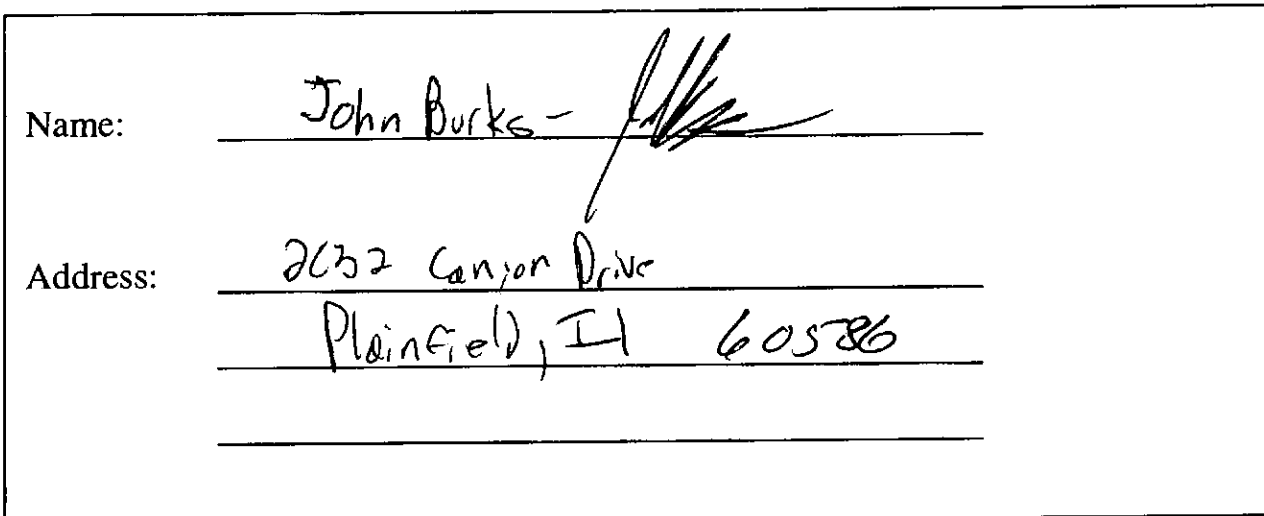 Name: John Burks -
Address: 2632 Canyon Drive
Plainfield, Il 60586